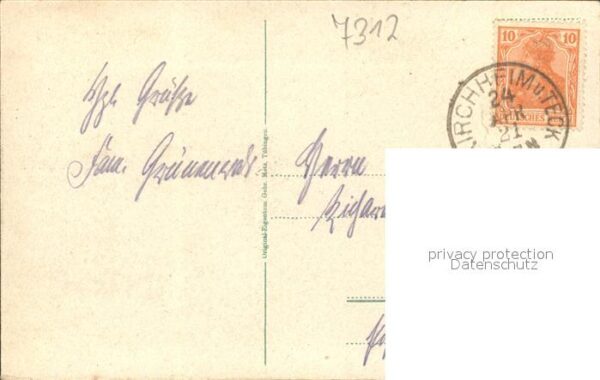 7312
10 10
DEUTSCHES
KIRCHHEIM u. TECK
24
21
Hzl. Grüße
Fam. Grünenwald
Original-Eigentum Gebr. Metz, Tübingen.
Herrn
Richar
privacy protection
Datenschutz